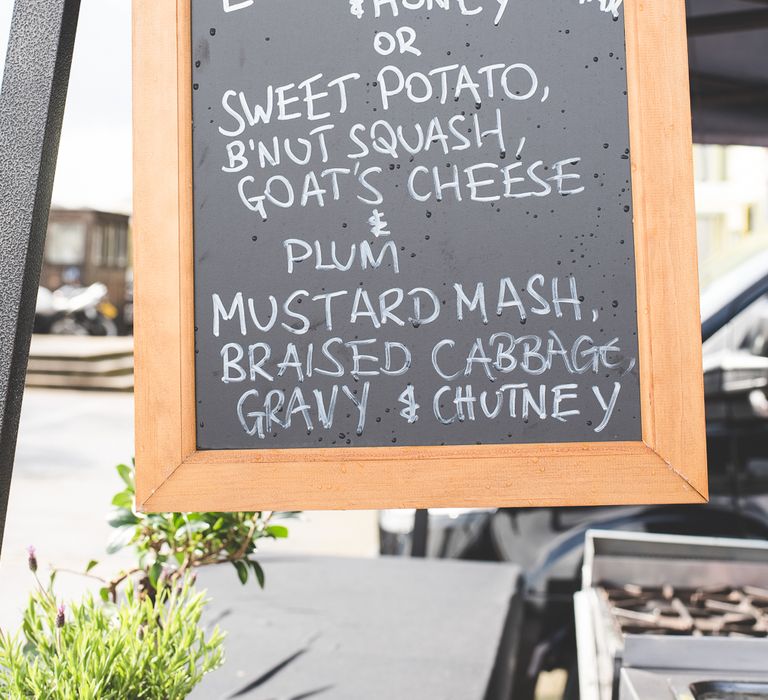 & HONEY
OR
SWEET POTATO,
B'NUT SQUASH,
GOAT'S CHEESE
&
PLUM
MUSTARD MASH,
BRAISED CABBAGE,
GRAVY & CHUTNEY